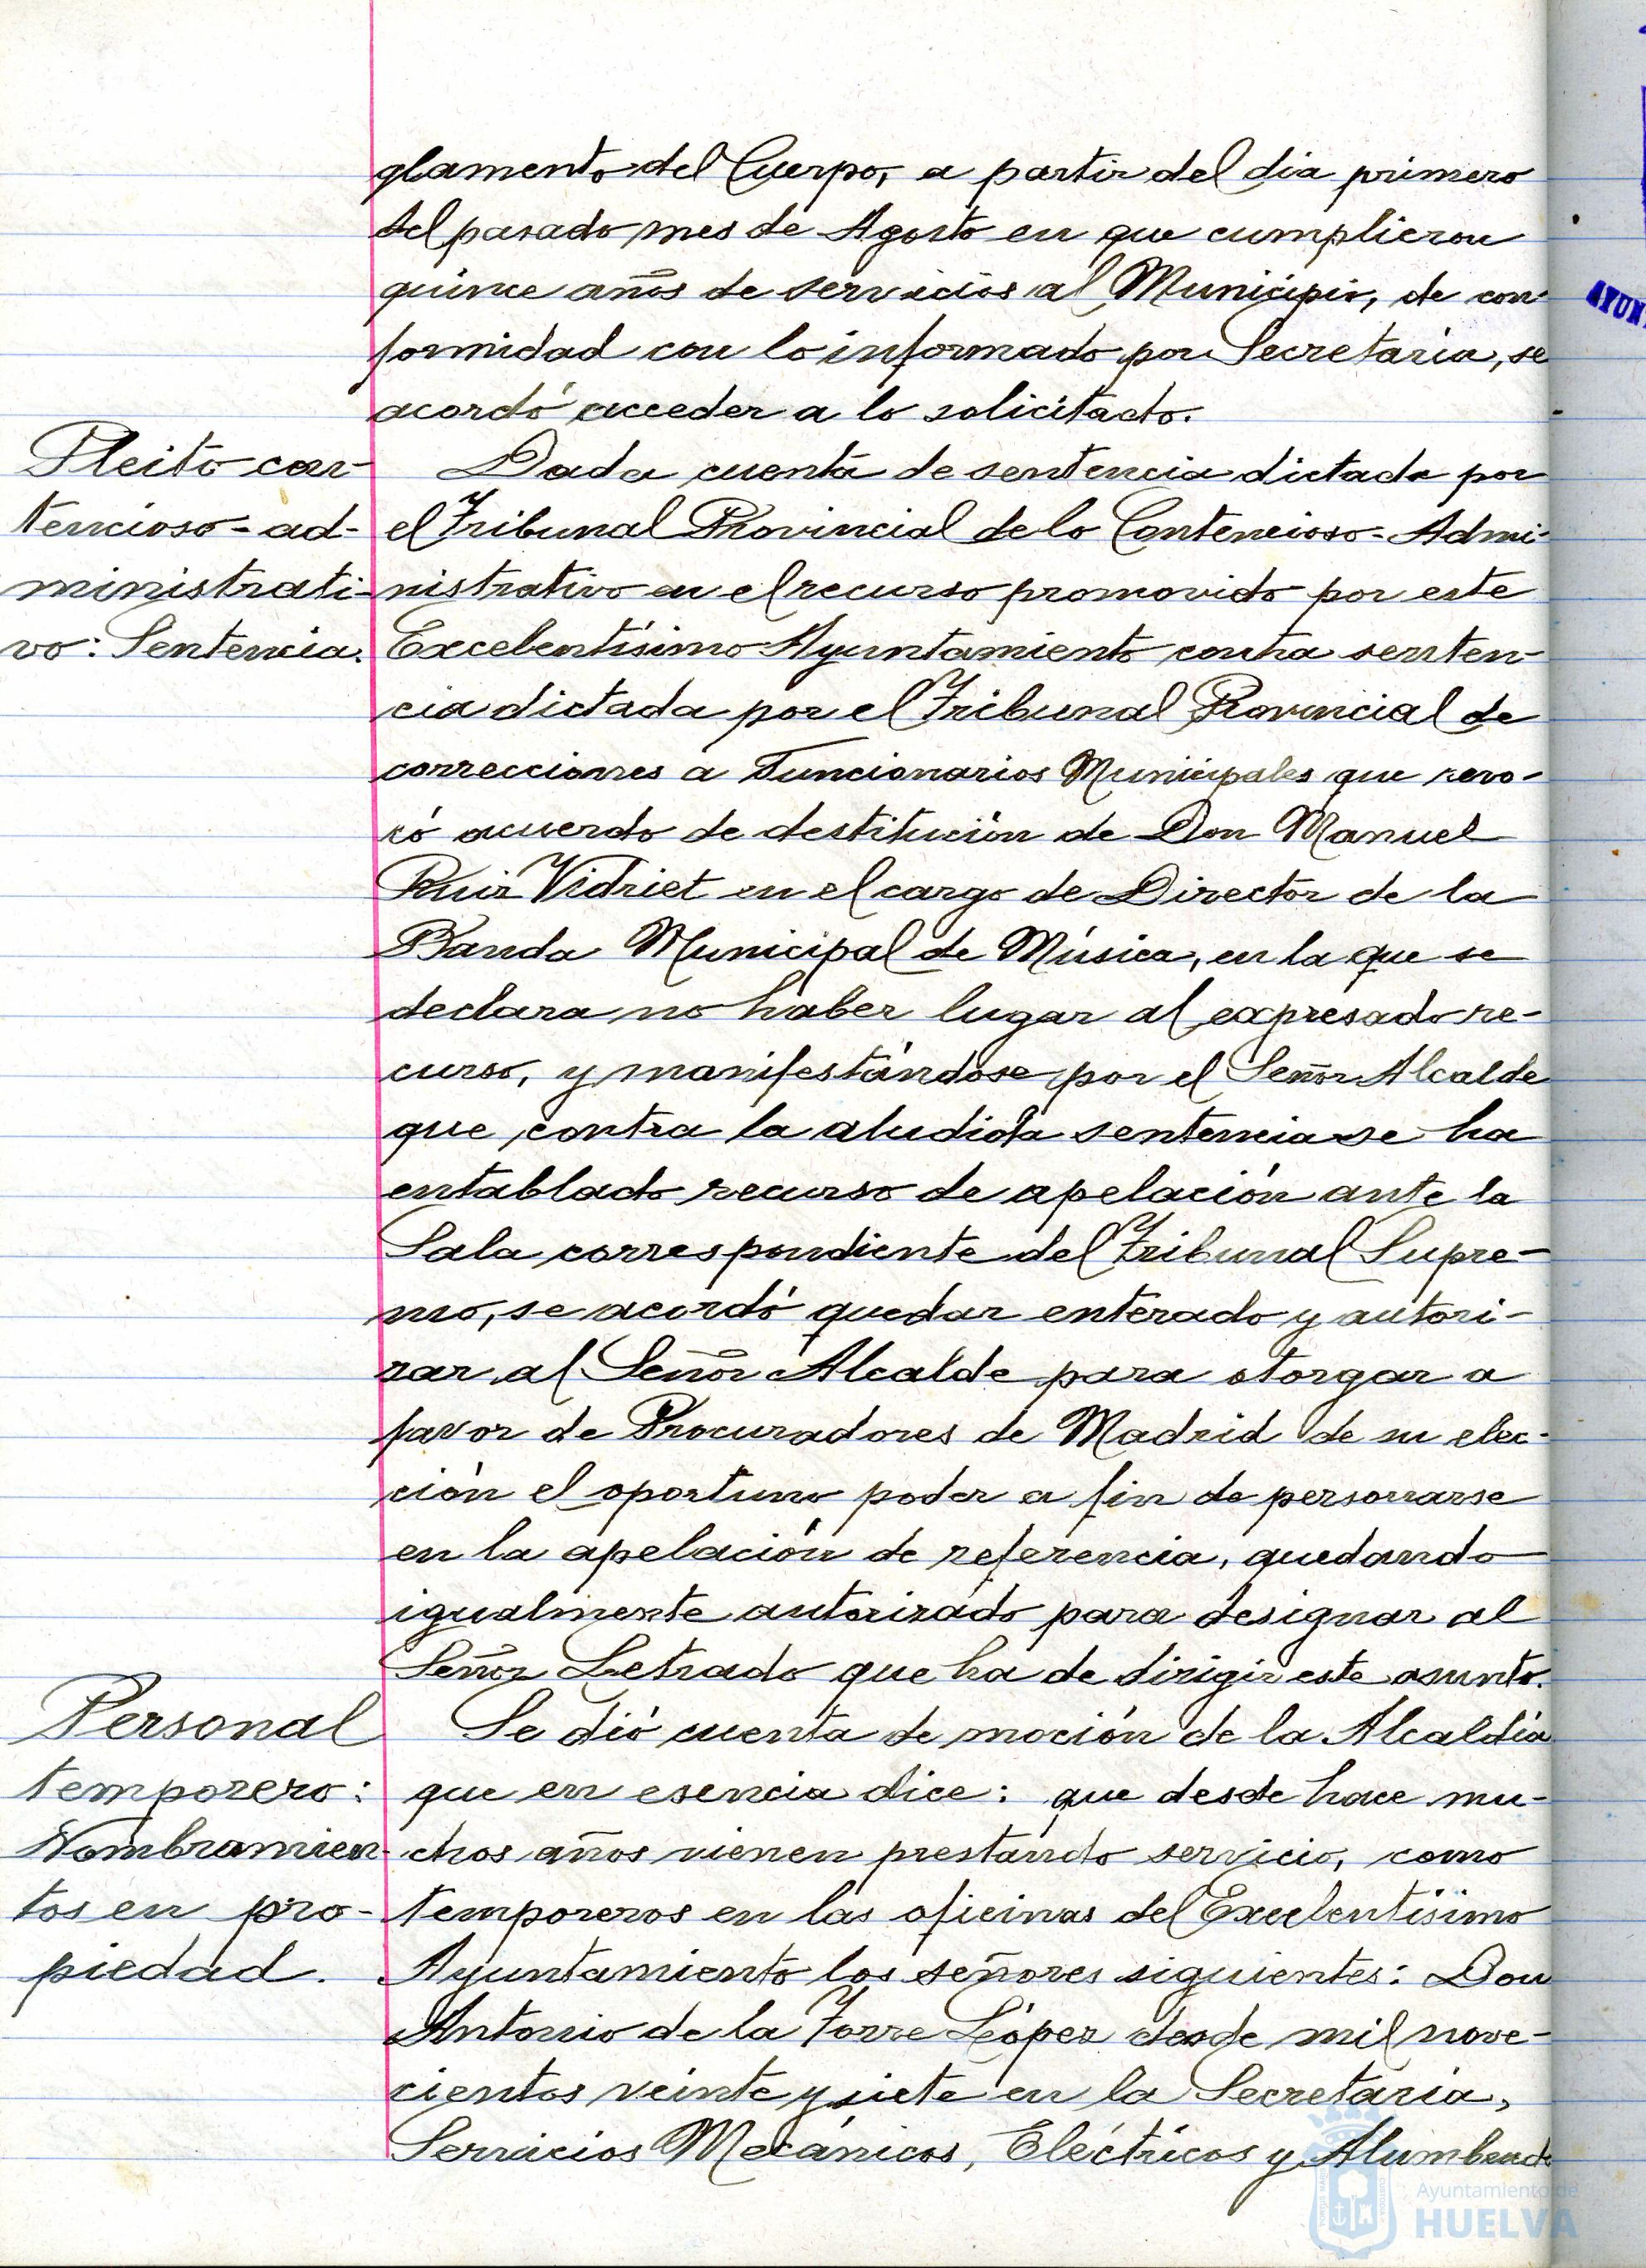 glamento del Cuerpo, a partir del dia primero
del pasado mes de Agosto en que cumplieron
quince años de servicios al Municipio, de con-
formidad con lo informado por Secretaria, se
acordó acceder a lo solicitado.
Pleito con-
tencioso-ad-
ministrati-
vo: Sentencia.
Dada cuenta de sentencia dictada por
el Tribunal Provincial de lo Contencioso-Admi-
nistrativo en el recurso promovido por este
Excelentísimo Ayuntamiento contra senten-
cia dictada por el Tribunal Provincial de
correcciones a Funcionarios Municipales que revo-
có acuerdo de destitución de Don Manuel
Ruiz Vidriet en el cargo de Director de la
Banda Municipal de Música, en la que se
declara no haber lugar al expresado re-
curso, y manifestándose por el Señor Alcalde
que contra la aludida sentencia se ha
entablado recurso de apelación ante la
Sala correspondiente del Tribunal Supre-
mo, se acordó quedar enterado y autori-
zar al Señor Alcalde para otorgar a
favor de Procuradores de Madrid de su elec-
ción el oportuno poder a fin de personarse
en la apelación de referencia, quedando
igualmente autorizado para designar al
Señor Letrado que ha de dirigir este asunto.
Personal
temporero:
Nombramien-
tos en pro-
piedad.
Se dió cuenta de moción de la Alcaldía
que en esencia dice: que desde hace mu-
chos años vienen prestando servicio, como
temporeros en las oficinas del Excelentísimo
Ayuntamiento los señores siguientes: Don
Antonio de la Torre López desde mil nove-
cientos veinte y siete en la Secretaría,
Servicios Mecánicos, Eléctricos y Alumbrado
Ayuntamiento de
HUELVA